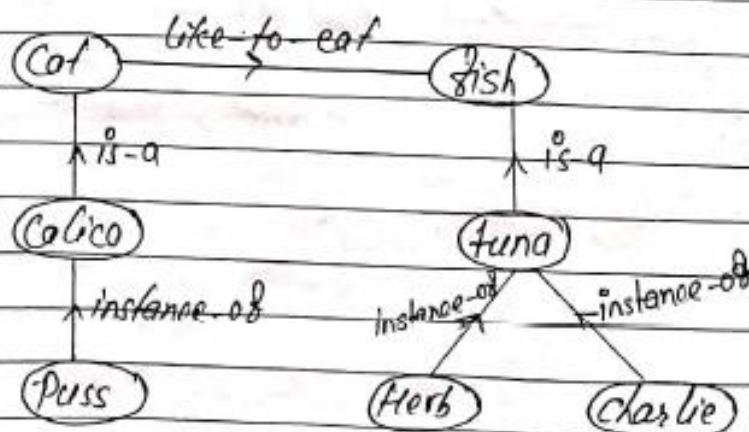 like-to-eat
Cat fish
is-a is-a
Calico tuna
instance-of instance-of instance-of
Puss Herb Charlie